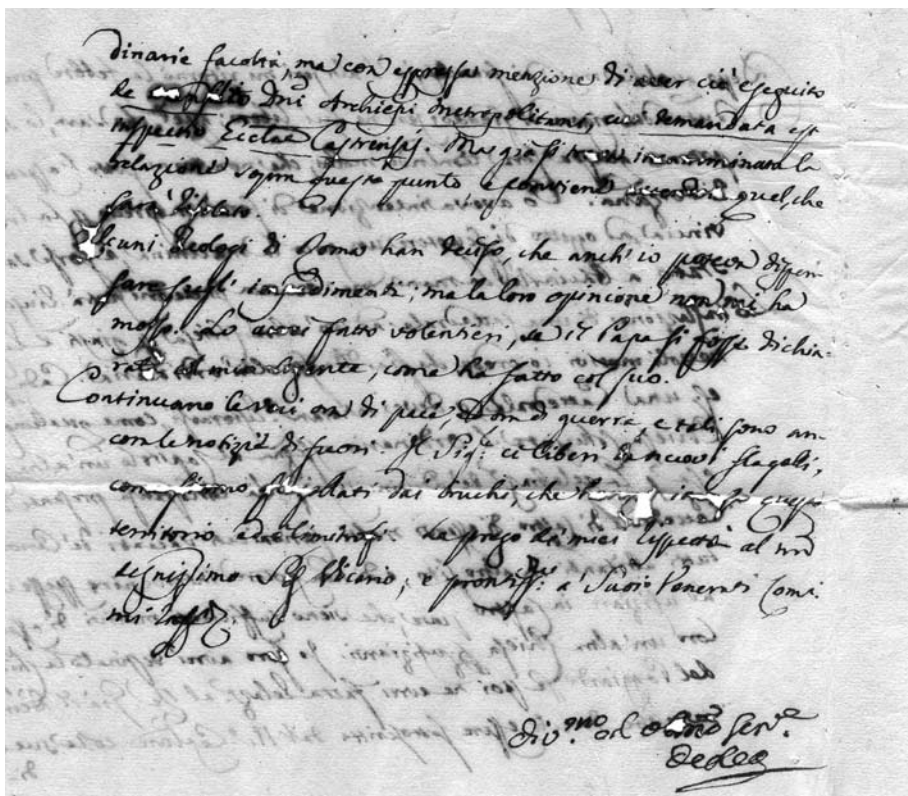 dinarie facoltà, ma con espressa menzione di aver ciò eseguito
de Dnī Archiepī Metropolitani, cui demandata est
inspectio Ecclae Castrensis. Ma già si trova incamminata la
relazione sopra questo punto, e conviene quel, che
sarà risoluto.
Alcuni Teologi di Roma han deciso, che anch'io poteva dispen-
sare sugl' impedimenti, ma la loro opinione non mi ha
mosso. Lo avrei fatto volentieri, se il Papa si fosse dichia-
rato col mio Agente, come ha fatto col suo.
Continuano le voci or di pace, or di guerra, e tali sono an-
con le notizie di fuori. Il Sigr. ci liberi da nuovi flagelli,
dai bruchi, che questo
territorio, ed i limitrofi. La prego de' miei rispetti al mio
degnissimo Sigr Vicario, e prontissº. a' Suoi Venerati Coma-
mi raffº.
Div.mo ed Obbmo Serv.e